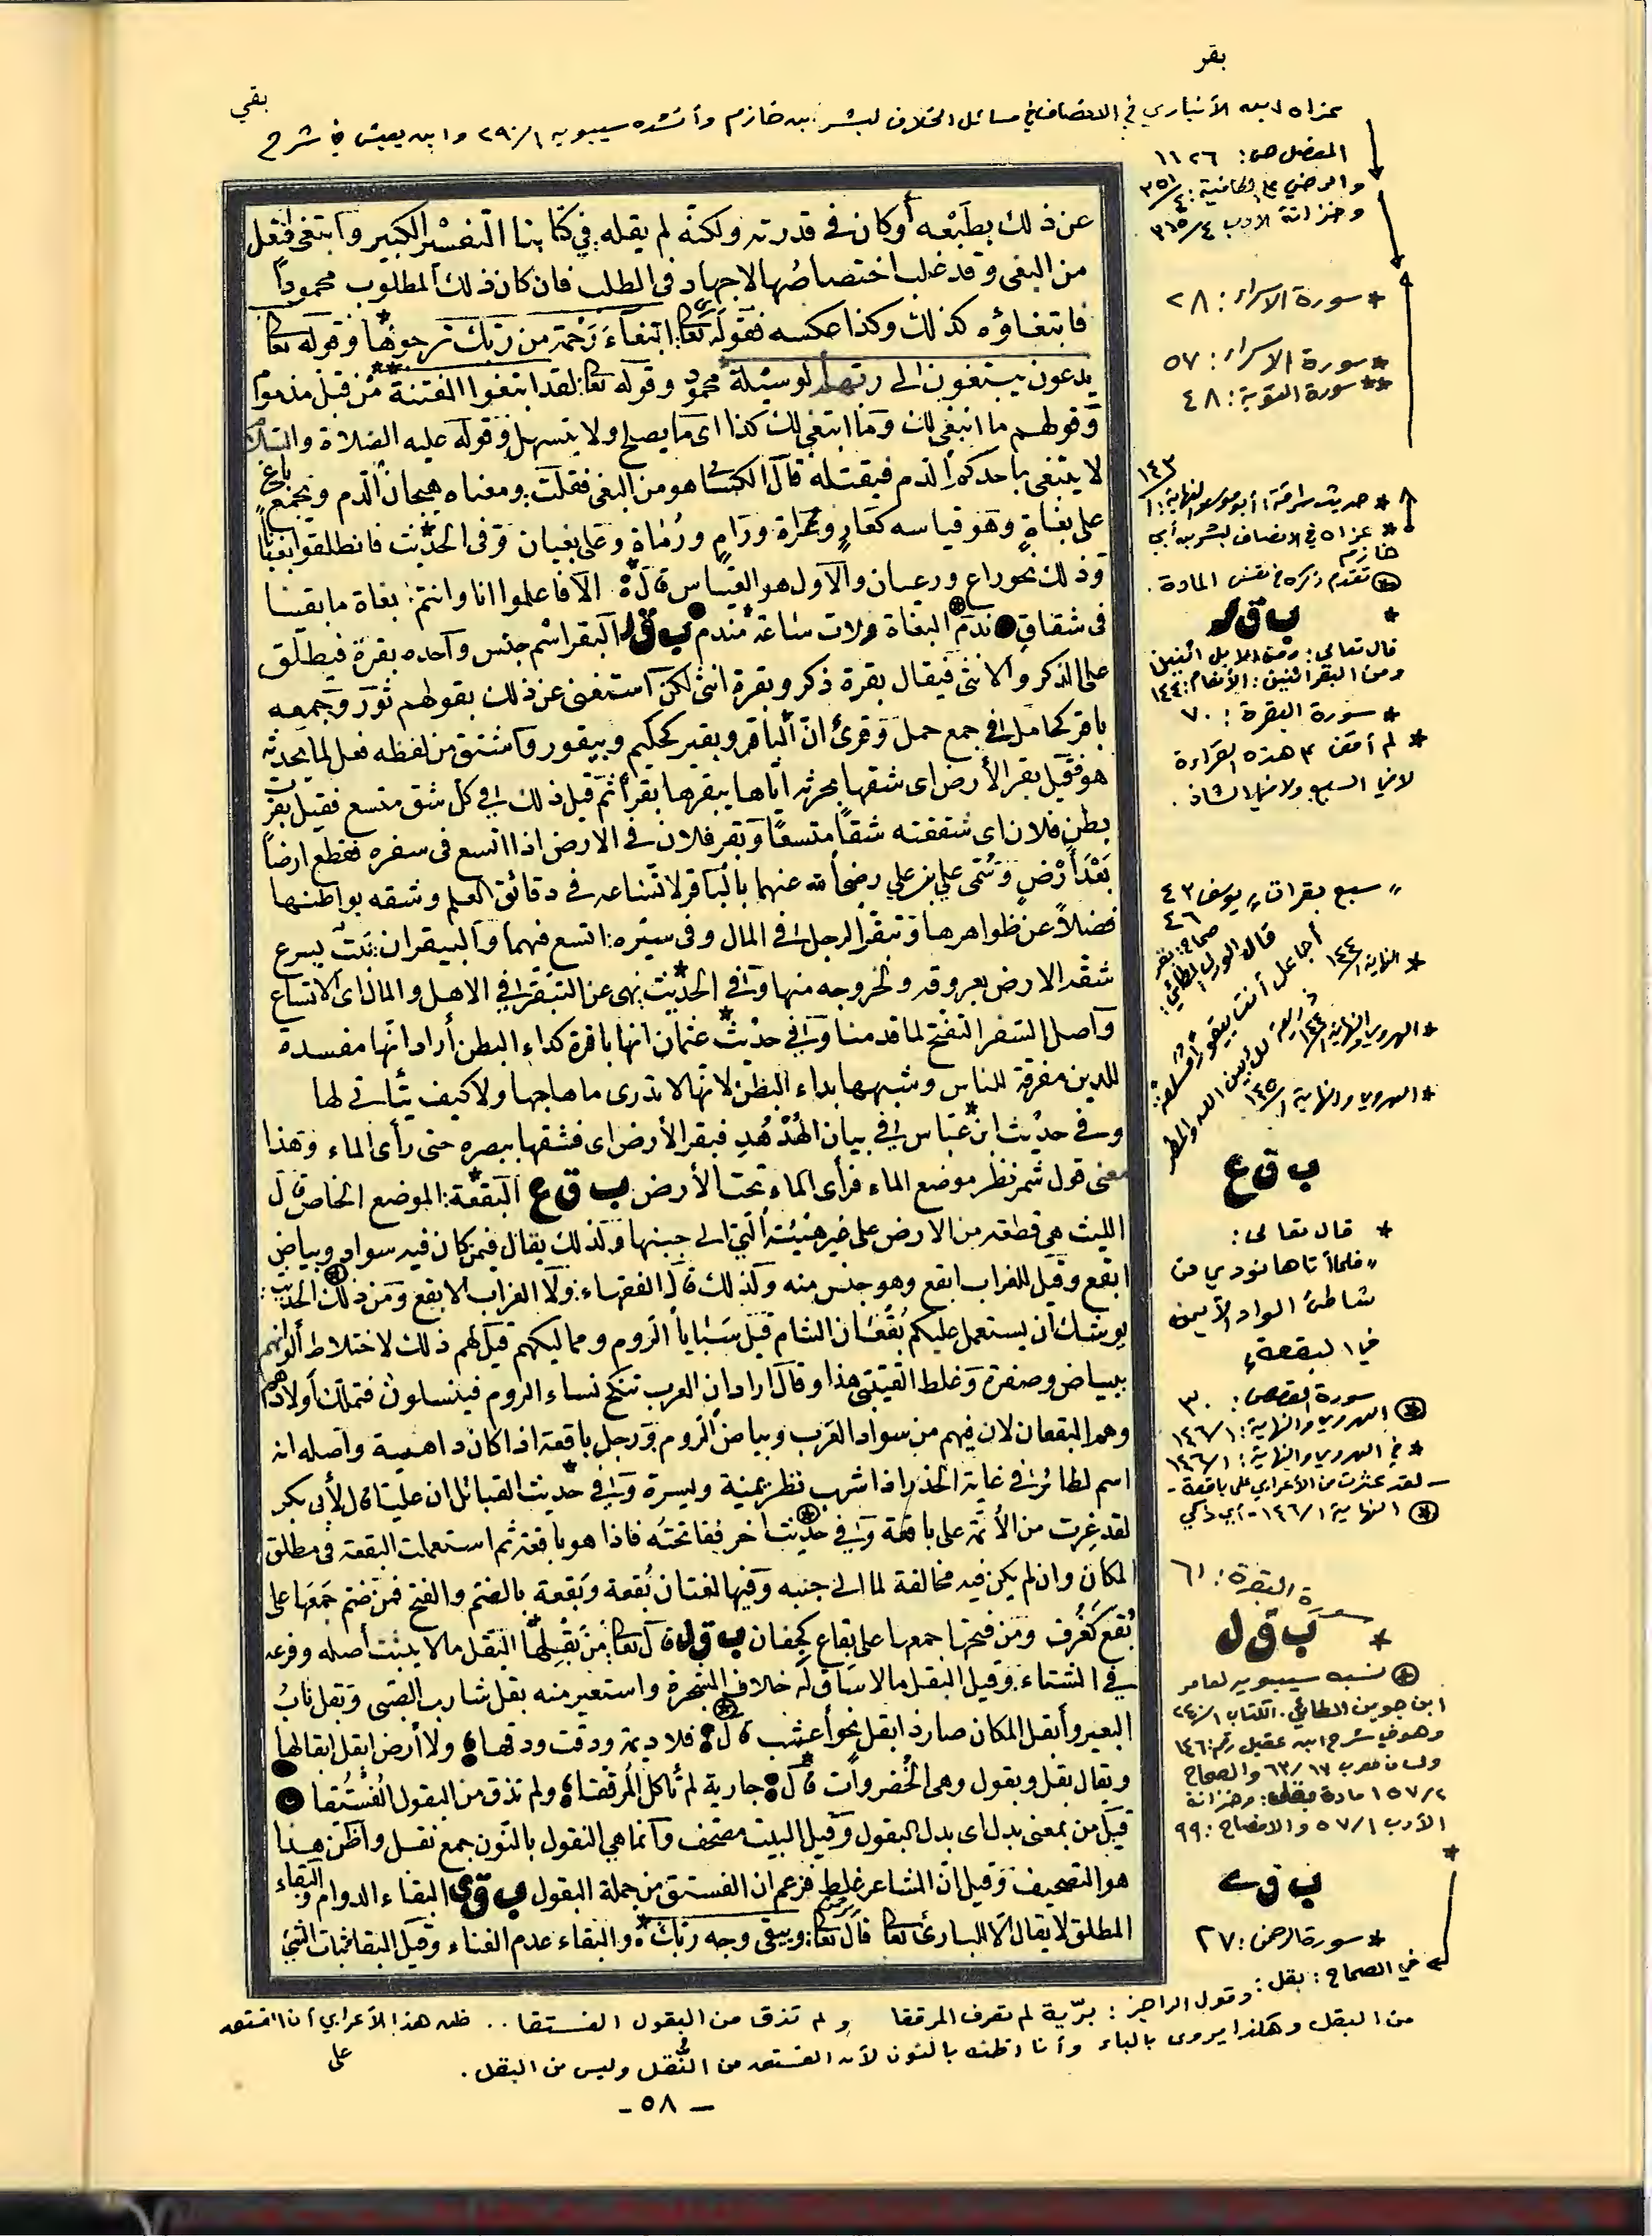 بقر
بقي
عزاه ابن الأنباري في الانصاف في مسائل الخلاف لبشر بن خازم وأنشده سيبويه ٢٩٠/١ وابن يعيش في شرح
المفصل ص: ١١٢٦
والرضي على الكافية: ٣٥١/٤
وخزانة الأدب ٣١٥/٤
عن ذلك بطبعه أو كان في قدرته ولكنه لم يقله في كتابنا التفسير الكبير وابتغى افتعل
من البغي وقد غلب اختصاصها لاجهاد في الطلب فان كان ذلك المطلوب محمودا
فابتغاؤه كذلك وكذا عكسه فقوله تعا ابتغاء رحمة من ربك ترجوها وقوله تعا
يدعون يبتغون الى ربهم الوسيلة محمود وقوله تعا لقد ابتغوا الفتنة من قبل مذموم
وقولهم ما انبغى لك وما ابتغى لك كذا اى ما يصلح ولا يتسهل وقوله عليه الصلاة والسلام
لا يتبغى باحدكم الدم فيقتله قال الكسائي هو من البغي فقلت ومعناه هيجان الدم ويجمع باغ
على بغاة وهو قياسه كعار وعراة ورام ورماة وعلى بغيان وفي الحديث فانطلقوا بغيانا
وذلك نحو راع ورعيان والاول هو القياس قال ألا فاعلموا انا وانتم بغاة ما بقينا
في شقاق ندم البغاة ولات ساعة مندم ب ق ر البقر اسم جنس واحده بقرة فيطلق
على الذكر والانثى فيقال بقرة ذكر وبقرة انثى لكن استغنى عن ذلك بقولهم ثور وجمعه
باقر كحامل في جمع حمل وقرئ ان الباقر وبقير كحكيم وبيقور واشتق من لفظه فعل لما يحدثه
هو فقيل بقر الأرض اى شقها بحرثه اياها يبقرها بقرا ثم قيل ذلك في كل شق متسع فقيل بقرت
بطن فلان اى شققته شقا متسعا وبقر فلان في الارض اذا اتسع في سفره فقطع ارضا
بعد أرض وسمى علي بن علي رضي الله عنهما بالباقر لاتساعه في دقائق العلم وشقه بواطنها
فضلا عن ظواهرها وتبقر الرجل في المال وفي سيره اتسع فيهما والبيقران نبت يسرع
شقه الارض بعروقه ولخروجه منها وفي الحديث نهى عن التبقر في الاهل والمال اى الاتساع
واصل التبقر التفتح لما قدمنا وفي حديث عثمان انها باقرة كداء البطن أراد انها مفسدة
للدين مفرقة للناس وشبهها بداء البطن لانها لا تدرى ما هاجها ولا كيف يتأتى لها
وفي حديث ابن عباس في بيان الهدهد فبقر الأرض اى فشقها ببصره حتى رأى الماء وهذا
معنى قول شمر نظر موضع الماء فرأى الماء تحت الأرض ب ق ع البقعة الموضع الخاص قال
الليث هي قطعة من الارض على غير هيئة التي الى جنبها ولذلك يقال فيمن كان فيه سواد وبياض
ابقع وقيل للغراب ابقع وهو جنس منه ولذلك قال الفقهاء ولا الغراب الابقع ومن ذلك الحديث
يوشك ان يستعمل عليكم بقعان الشام قيل سبايا الروم ومماليكهم قيل لهم ذلك لاختلاط ألوانهم
ببياض وصفرة وغلط القتيبي هذا وقال اراد ان العرب تنكح نساء الروم فينسلون فتملك أولادها
وهم البقعان لان فيهم من سواد العرب وبياض الروم ورجل باقعة اذا كان داهية واصله انه
اسم لطائر في غاية الحذر اذا شرب نظر يمينة ويسرة وفي حديث القبائل ان عليا قال لأبى بكر
لقد غرت من الأمة على باقعة وفي حديث آخر ففاتحته فاذا هو باقعة ثم استعملت البقعة في مطلق
المكان وان لم يكن فيه مخالفة لما الى جنبه وفيها لغتان بقعة وبقعة بالضم والفتح فمن ضم جمعها على
بقع كغرف ومن فتحها جمعها على بقاع كجفان ب ق ل قال تعا من بقلها البقل ما لا يثبت أصله وفرعه
في الشتاء وقيل البقل ما لا ساق له خلاف الشجرة واستعير منه بقل شارب الصبى وبقل ناب
البعير وأبقل المكان صار ذا بقل نحو أعشب قال فلا ديمة ودقت ودقها ولا أرض ابقل ابقالها
ويقال بقل وبقول وهي الخضروات قال جارية لم تأكل المرققا ولم تذق من البقول الفستقا
قيل من بمعنى بدل اى بدل البقول وقيل البيت مصحف وانما هي النقول بالنون جمع نقل واظن هذا
هو التصحيف وقيل ان الشاعر غلط فزعم ان الفستق من جملة البقول ب ق ى البقاء الدوام والبقاء
المطلق لا يقال الا للبارئ تعا قال تعا ويبقى وجه ربك والبقاء عدم الفناء وقيل البقا ثبات الشئ
* سورة الاسراء: ٢٨
* سورة الاسراء: ٥٧
** سورة التوبة: ٤٨
* عزاه في الانصاف لبشر بن أبي
خازم
تقدم ذكره في نفس المادة.
* ب ق ر
قال تعالى: ومن الابل اثنين
ومن البقر اثنين: الأنعام: ١٤٤
* سورة البقرة: ٧٠
* لم أقف على هذه القراءة
لا في السبع ولا في الشاذ.
" سبع بقرات " يوسف ٤٣
٤٦
* النهاية ١٤٤/١
* الهروي والنهاية ١٤٤/١
* الهروي والنهاية ١٤٥/١
ب ق ع
* قال تعالى:
" فلما أتاها نودي من
شاطئ الواد الأيمن
في البقعة "
سورة القصص: ٣٠
الهروي والنهاية: ١٤٦/١
* في الهروي والنهاية: ١٤٦/١
- لقد عثرت من الأعرابي على باقعة -
النهاية ١٤٦/١ - أي ذكي
سورة البقرة: ٦١
* ب ق ل
نسبه سيبويه لعامر
ابن جوين الطائي. الكتاب ٢٤٠/١
وهو في شرح ابن عقيل رقم: ١٤٦
ولسان العرب ٦٣/١٧ والصحاح
الأدب ٥٧/١ والايضاح: ٩٩
ب ق ى
* سورة الرحمن: ٢٧
في الصحاح: بقل: وقول الراجز: برّية لم تعرف المرققا ولم تذق من البقول الفستقا.. ظن هذا الأعرابي أن الفستق
من البقل وهكذا يروى بالباء وأنا اظنه بالنون لأن الفستق من النُّقل وليس من البقل.
على
- ٥٨ -